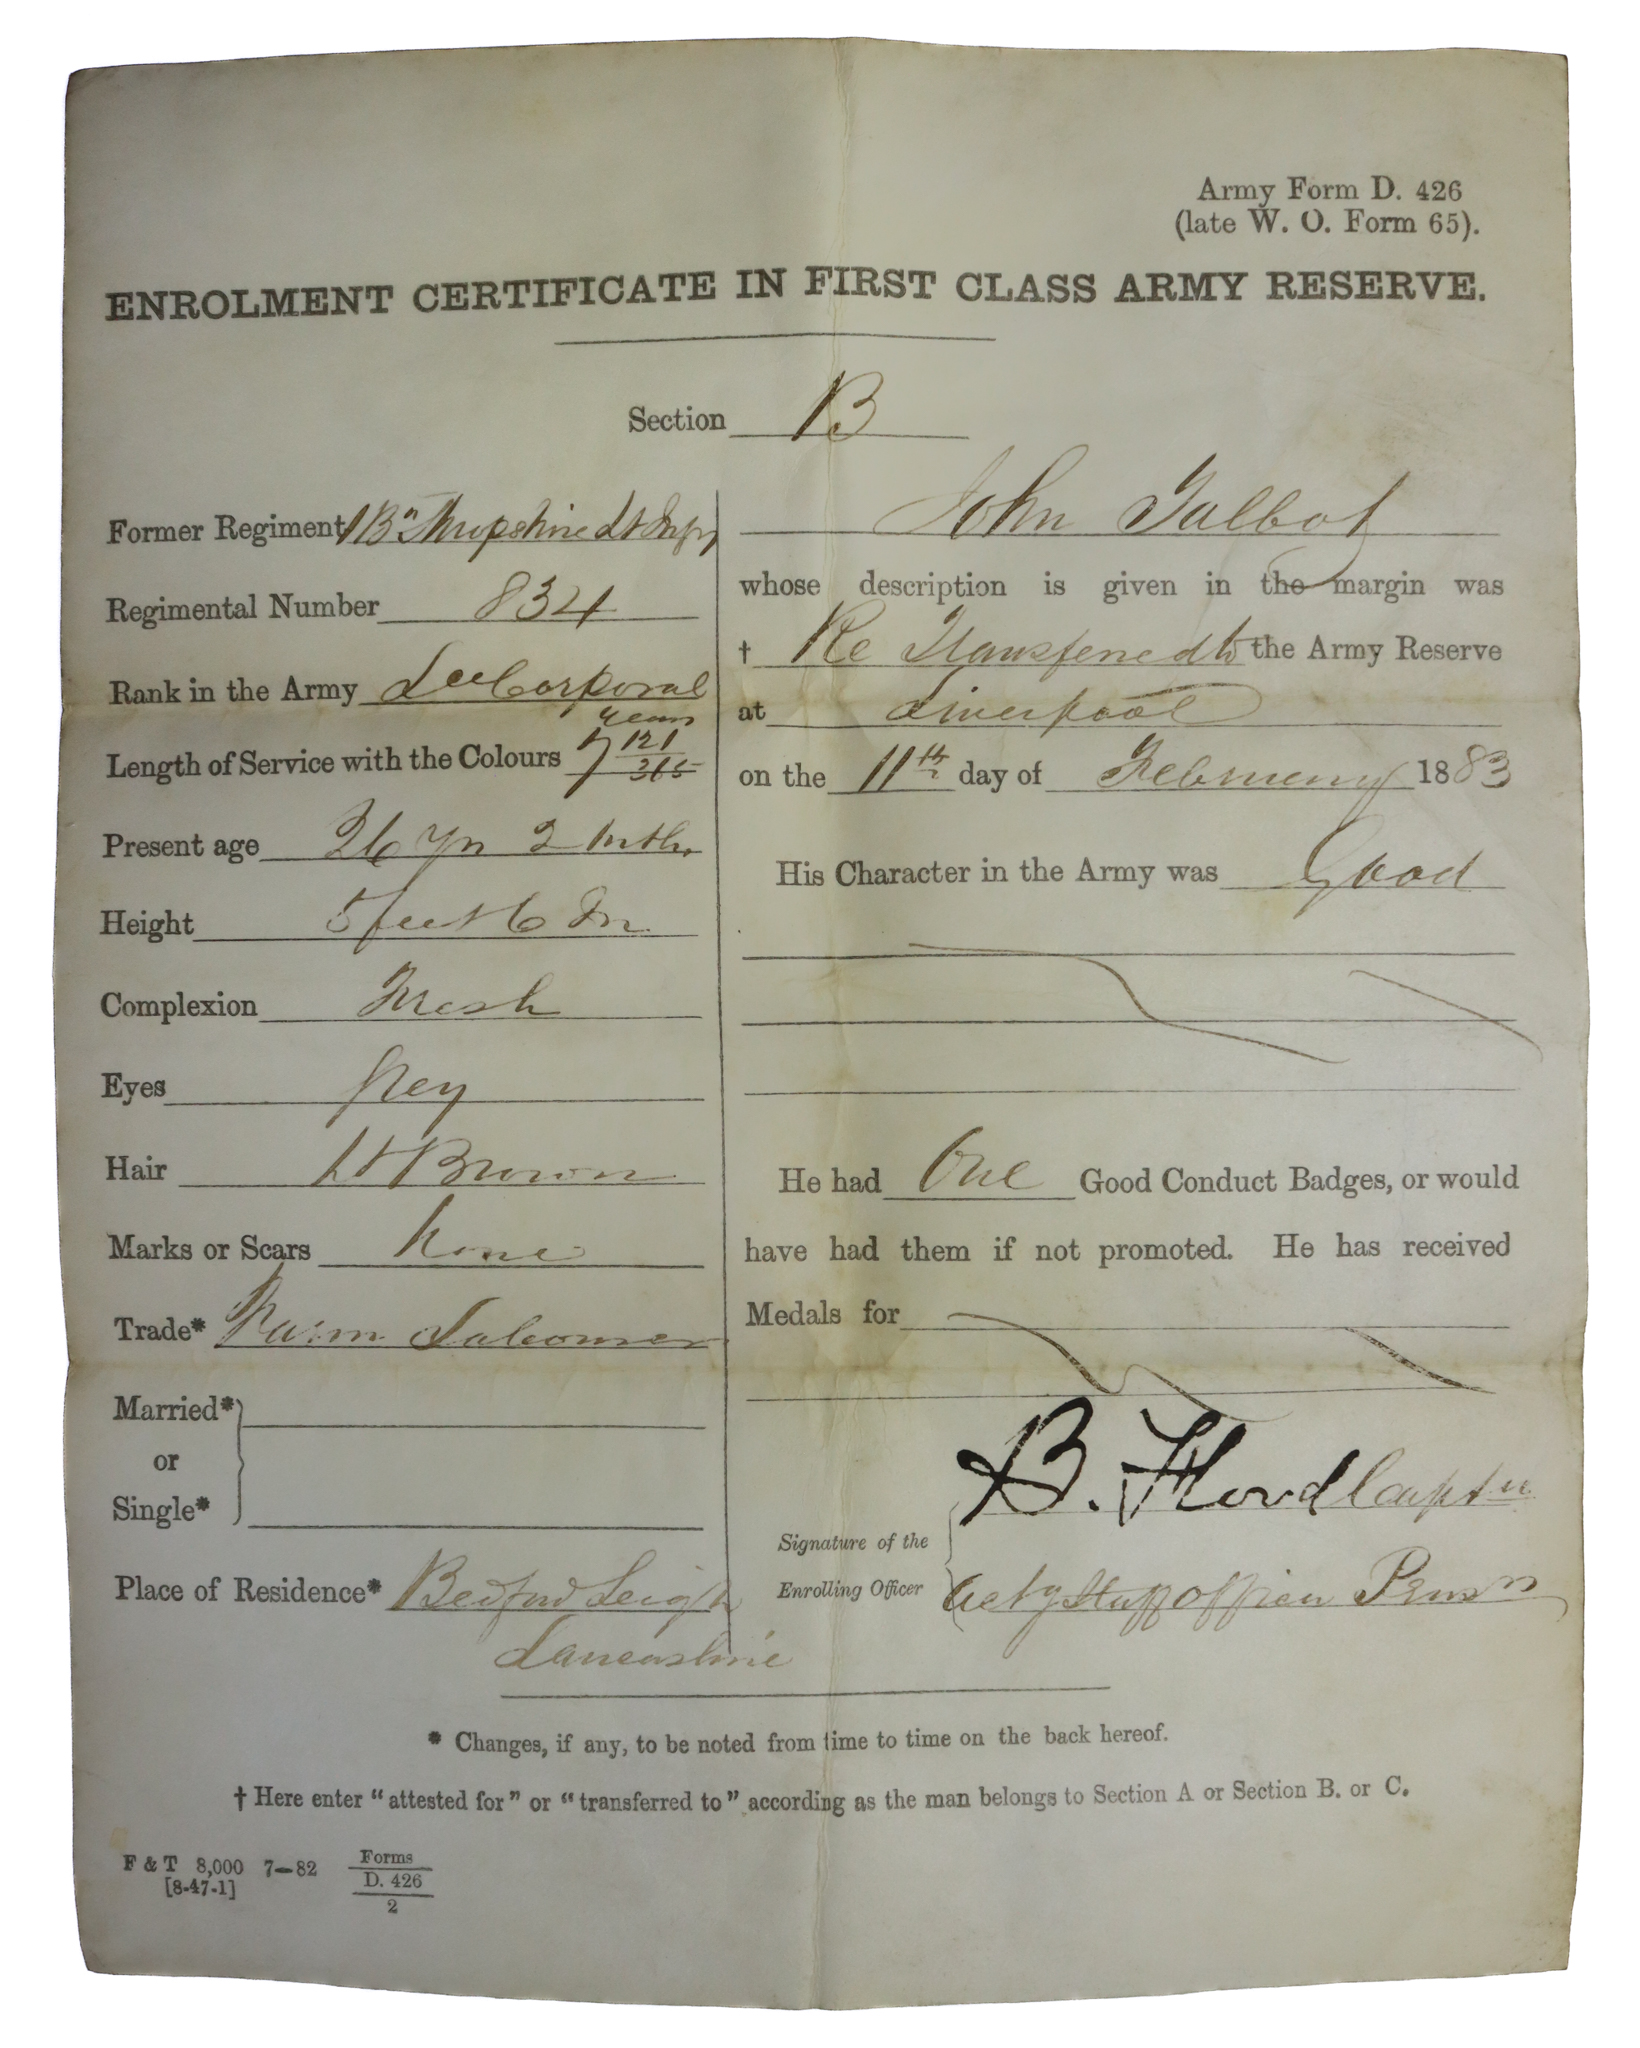 Army Form D. 426
(late W. O. Form 65).
ENROLMENT CERTIFICATE IN FIRST CLASS ARMY RESERVE.
Section B
Former Regiment 1 Bn Shropshire Lt Infy
Regimental Number 834
Rank in the Army Lce Corporal
Length of Service with the Colours 7 years 121/365
Present age 26 yrs 2 Mths
Height 5 feet 6 In
Complexion Fresh
Eyes Grey
Hair Lt Brown
Marks or Scars None
Trade* Farm Labourer
Married*
or
Single*
Place of Residence* Bedford Leigh
Lancashire
John Talbot
whose description is given in the margin was
† Re Transferred to the Army Reserve
at Liverpool
on the 11th day of February 1883
His Character in the Army was Good
He had One Good Conduct Badges, or would
have had them if not promoted. He has received
Medals for
B. Captn
Signature of the
Enrolling Officer
Actg Staff Officer Pensrs
* Changes, if any, to be noted from time to time on the back hereof.
† Here enter "attested for" or "transferred to" according as the man belongs to Section A or Section B. or C.
F & T 8,000 7—82 Forms
[8-47-1] D. 426
2